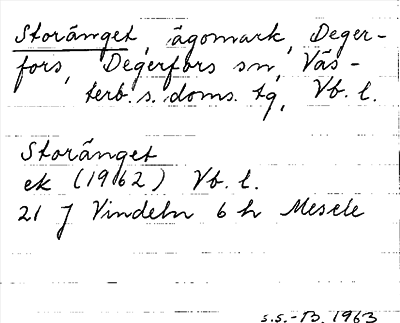 Storänget, ägomark, Deger-
fors, Degerfors sn, Väs-
terb. s. doms. tg, Vb. l.
Storänget
ek (1962) Vb. l.
21 J Vindeln 6 h Mesele
s.s.-B. 1963